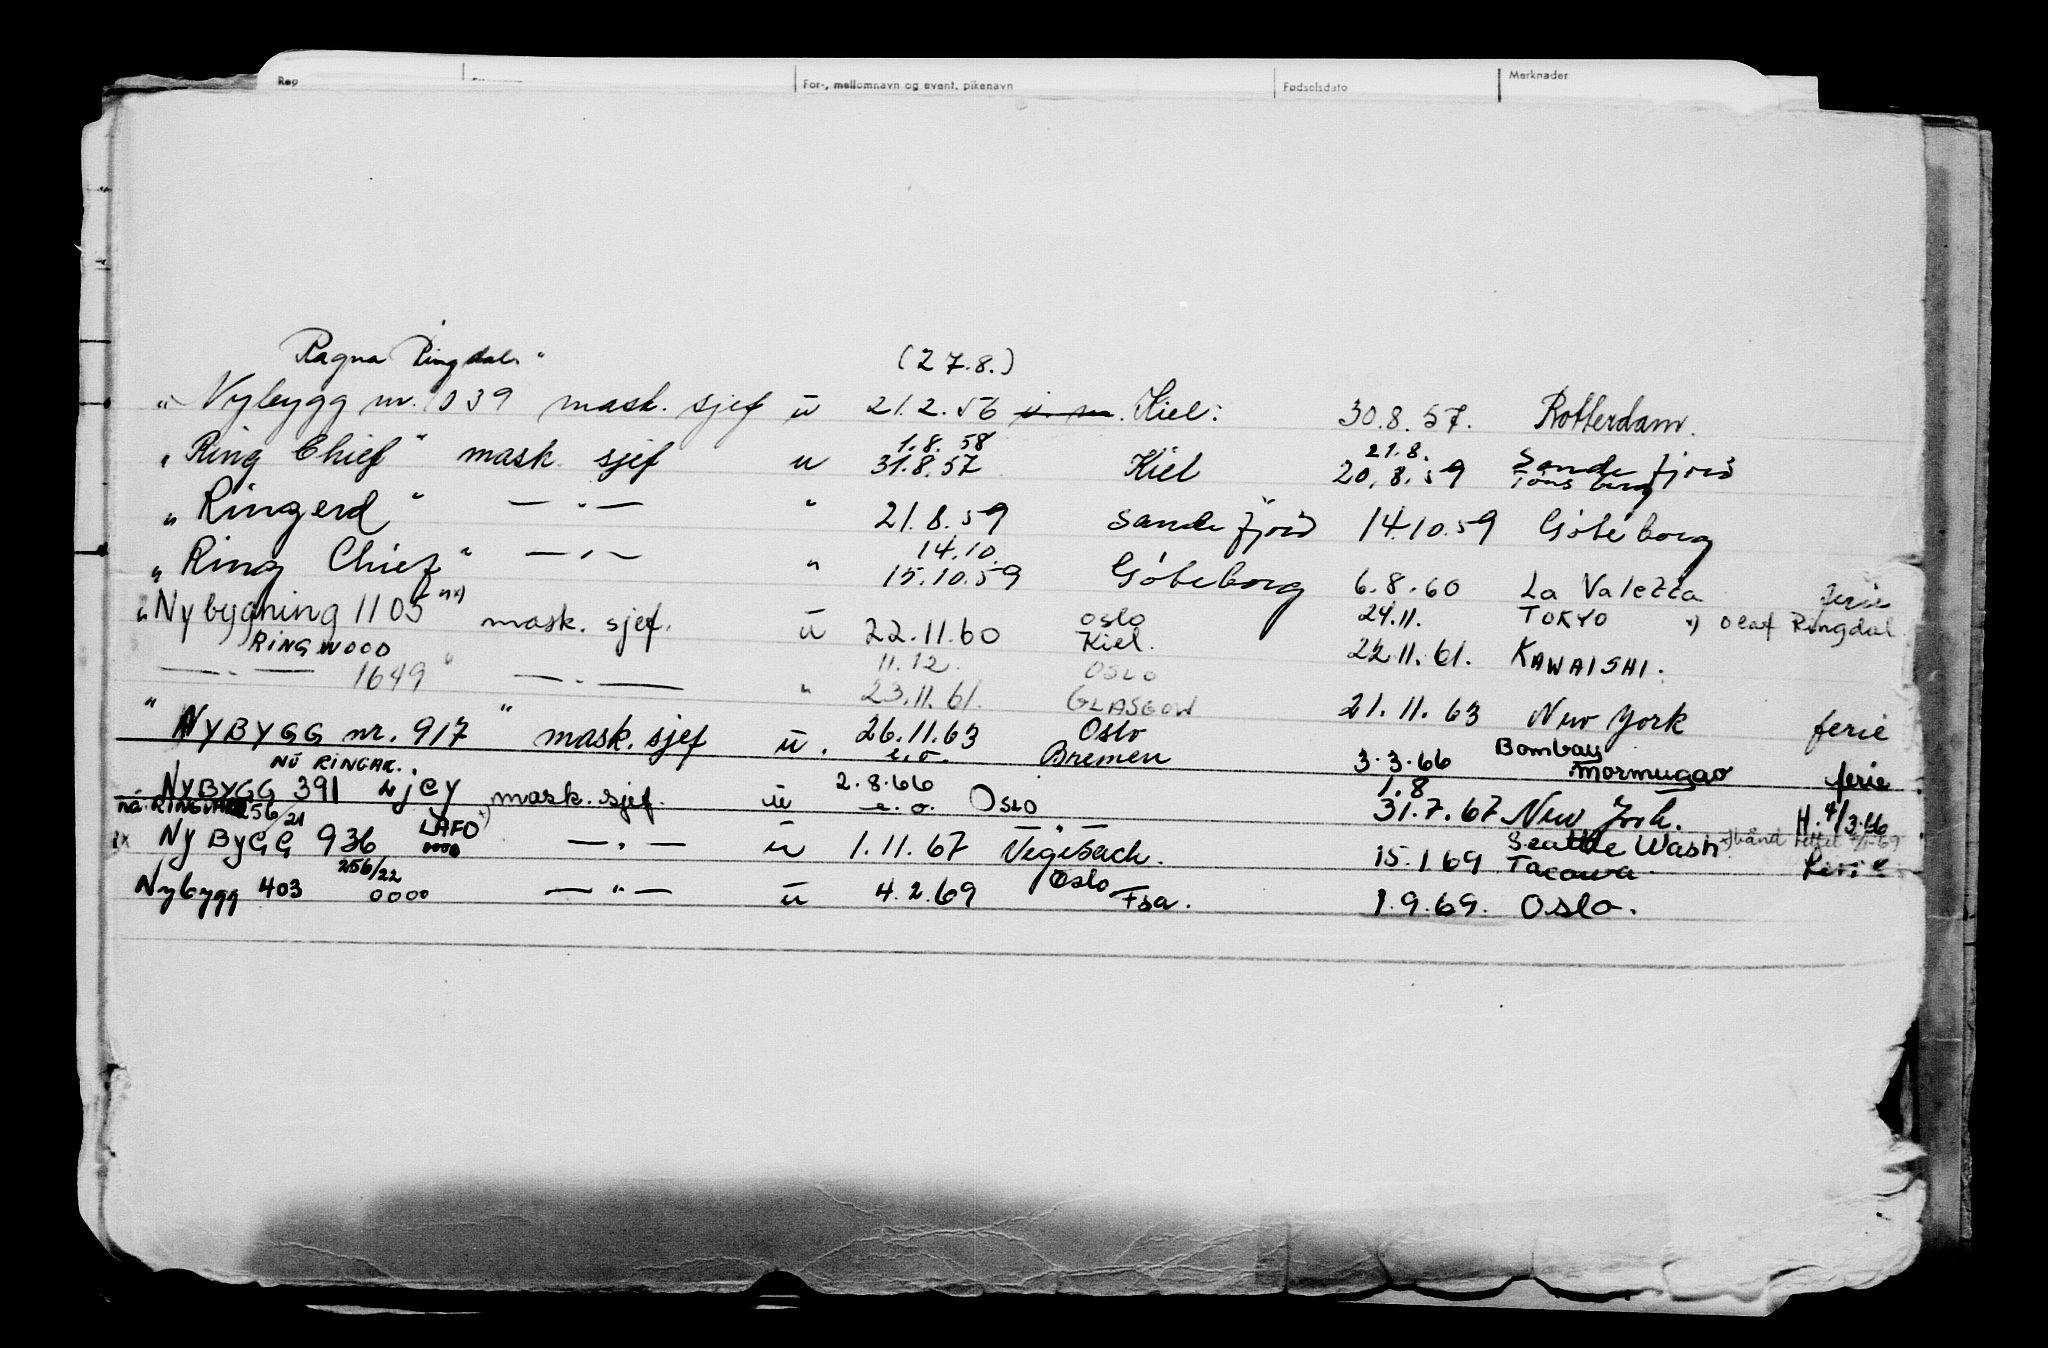 Reg
For-, mellomnavn og event. pikenavn
Fødselsdato
Merknader
Ragna Ringdal"
(27.8.)
" Nybygg nr. 1039 mask. sjef u 21.2.56 Kiel: 30.8.57. Rotterdam.
1.8.58 21.8. Sandefjord
"Ring Chief" mask. sjef u 31.8.57 Kiel 20.8.59 Tønsberg
"Ringerd" — " — " 21.8.59 Sandefjord 14.10.59 Göteborg
14.10.
"Ring Chief" — " — " 15.10.59 Göteborg 6.8.60 La Valetta ferie
Oslo 24.11. TOKYO x) Olaf Ringdal
"Nybygning 1105" x) mask. sjef. u 22.11.60 Kiel. 22.11.61. KAWAISHI.
RINGWOOD
11.12. OSLO
— " — 1649 " — " — " 23.11.61. GLASGOW 21.11.63 New York ferie
" NYBYGG nr. 917 " mask. sjef u. 26.11.63 Oslo
e.o. Bremen 3.3.66 Bombay Mormugao ferie
NÅ RINGAK.
NYBYGG 391 LJCY mask. sjef. u 2.8.66 1.8
e.o. Oslo 31.7.67 New York. H. 4/3.66
nå: 256/21
NyByGG 936 LAFO x) — " — u 1.11.67 Vegesack. 15.1.69 Seattle Wash
oooo Tacowa. ferie
256/22 Oslo
Nybygg 403 oooo — " — u 4.2.69 Fsa. 1.9.69. Oslo.